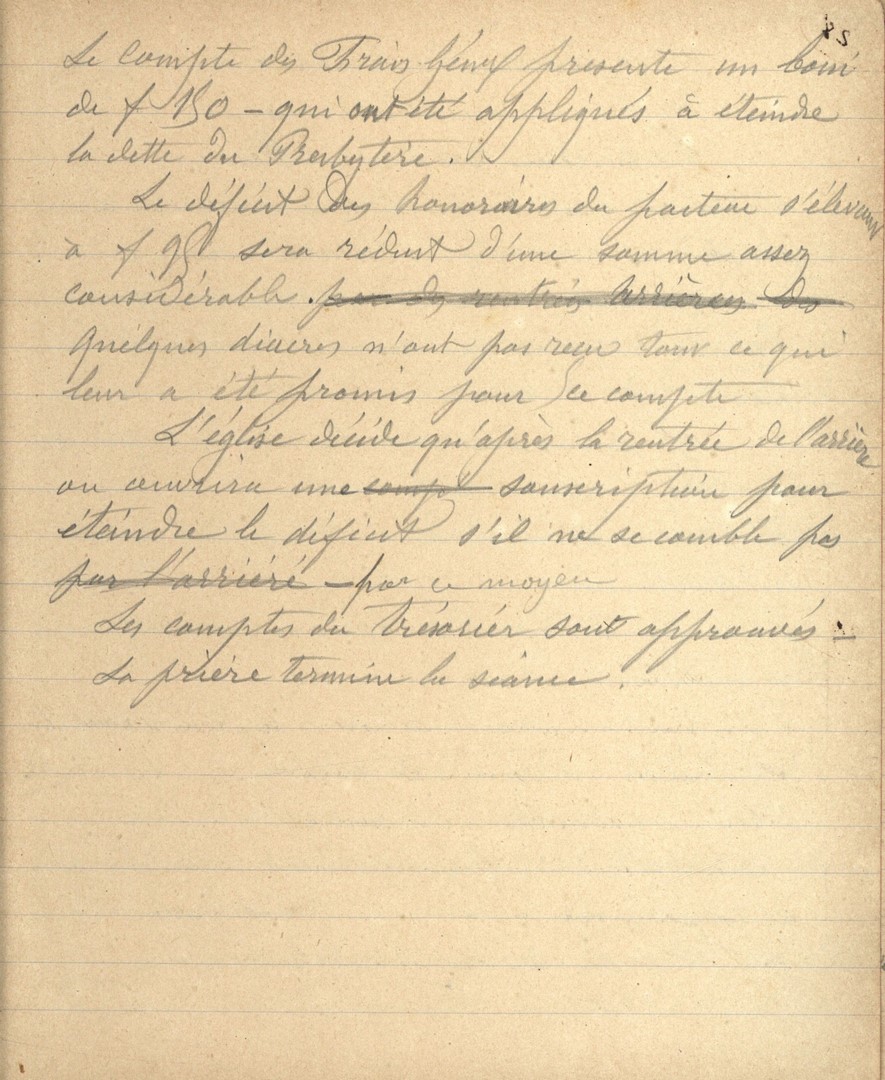 Le compte des Frais Génx présente un boni
de f 150 - qui ont été appliqués à éteindre
la dette du Presbytère.
Le déficit des honoraires du pasteur s'élevant
à f 95 sera réduit d'une somme assez
considérable. par des rentrées arriérées des
Quelques diacres n'ont pas reçu tout ce qui
leur a été promis pour ce compte
L'église décide qu'après la rentrée de l'arriéré
on ouvrira une compt souscription pour
éteindre le déficit s'il ne se comble pas
par l'arriéré - par ce moyen
Les comptes du trésorier sont approuvés -
La prière termine la séance.